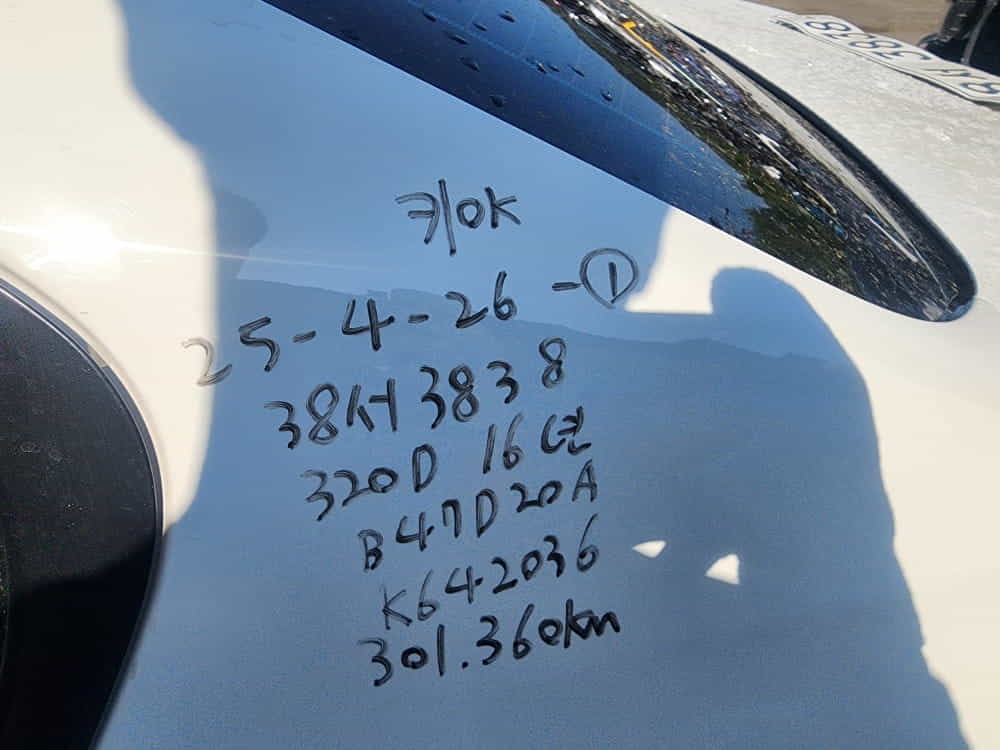 키OK
25-4-26 -①
38서3838
320D 16년
B47D20A
K642036
301.360km